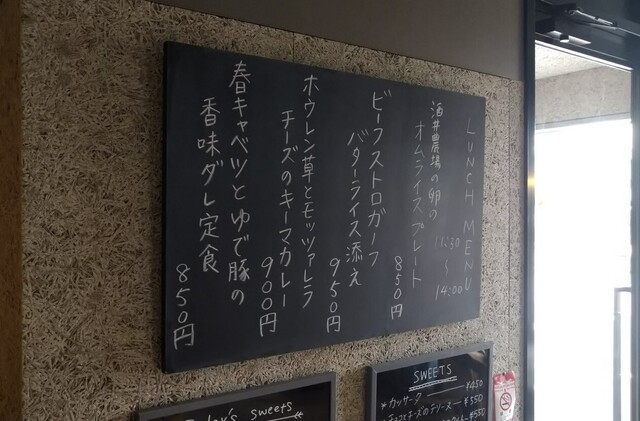 LUNCH MENU
11:30
〜
14:00
酒井農場の卵の
オムライスプレート
850円
ビーフストロガーノフ
バターライス添え
950円
ホウレン草とモッツァレラ
チーズのキーマカレー
900円
春キャベツとゆで豚の
香味ダレ定食
850円
Today's sweets
SWEETS
*カッサータ — ¥450
チョコとチーズのテリーヌ — ¥550
¥550